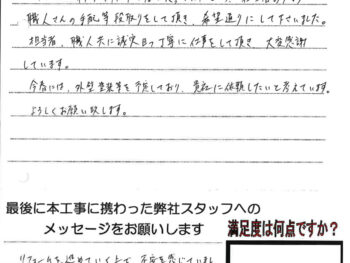 職人さんの手配等段取りをして頂き、希望通りにして下さいました。
担当者、職人共に誠実且つ丁寧に仕事をして頂き、大変感謝
しています。
今春には、外壁塗装等を予定しており、貴社に依頼したいと考えています。
よろしくお願い致します。
最後に本工事に携わった弊社スタッフへの
メッセージをお願いします
満足度は何点ですか?
リフォームを進めていく上で、不安を感じていまし